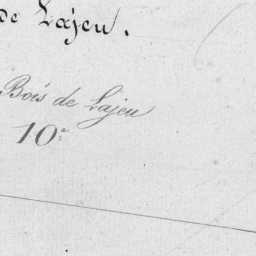 de Lajeu.
Bois de Lajeu
10.